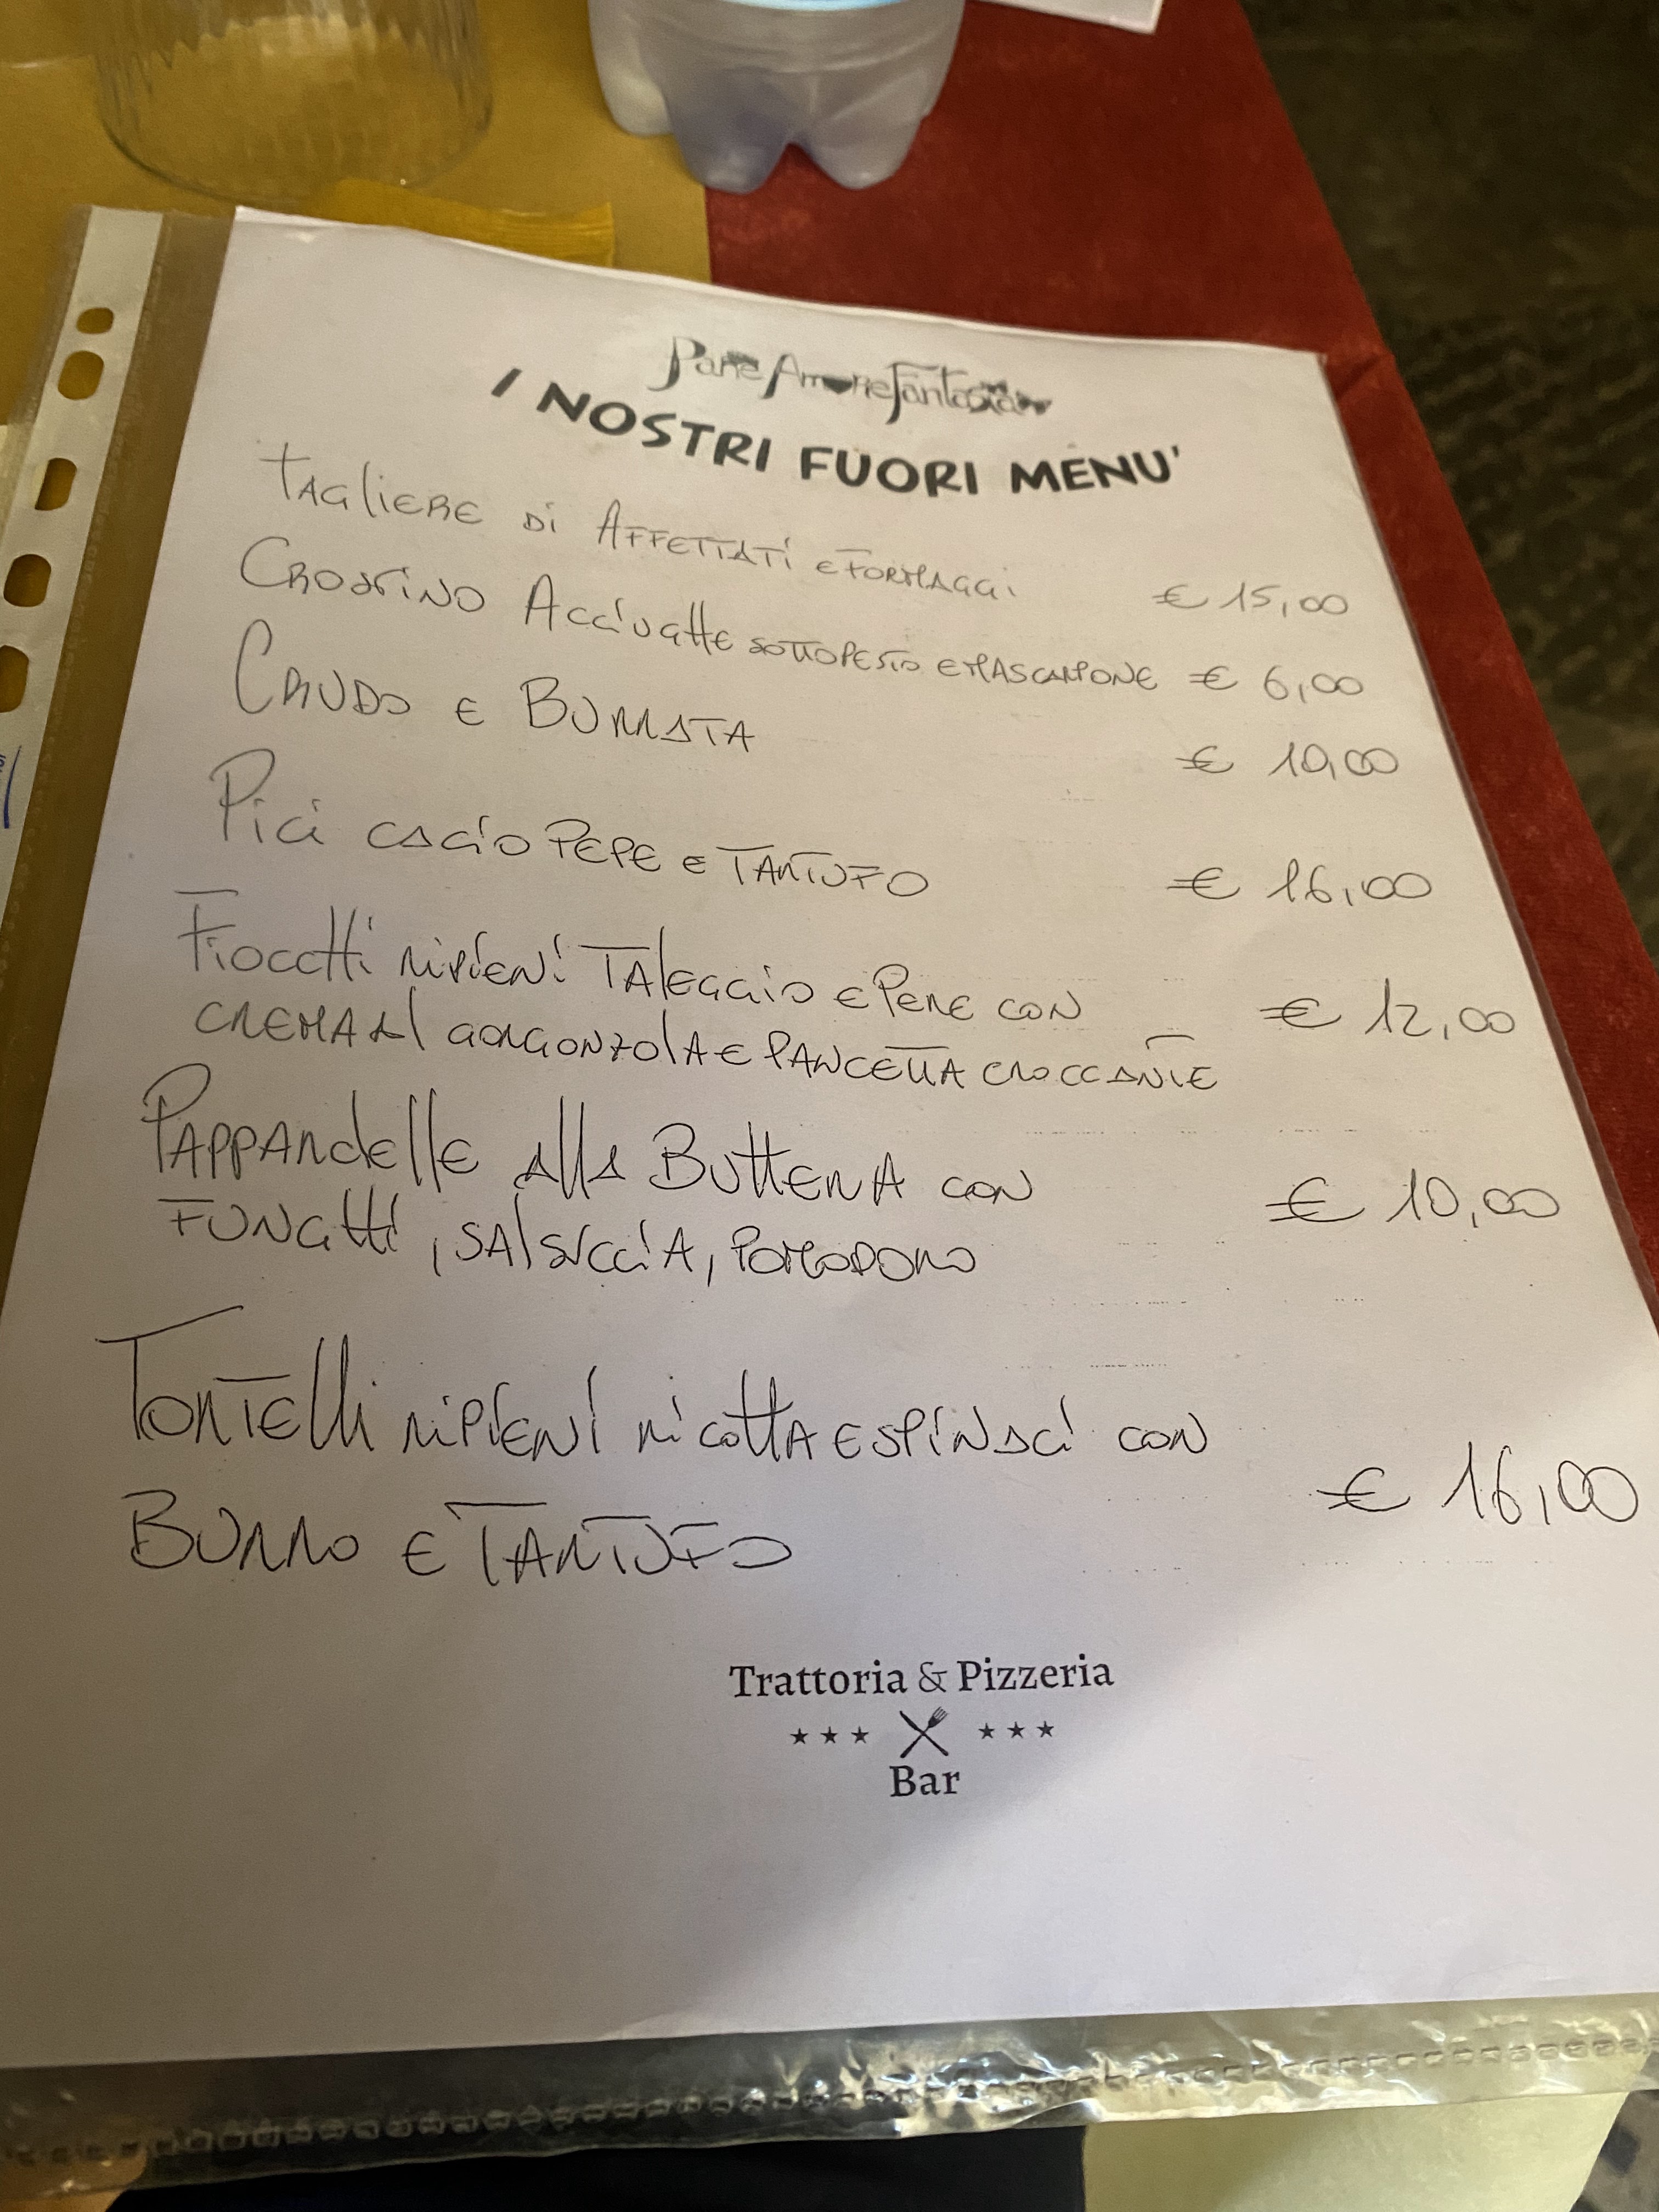 Pane Amore Fantasia
I NOSTRI FUORI MENU'
TAGLIERE DI AFFETTATI E FORMAGGI € 15,00
CROSTINO Acciughe SOTTOPESTO E MASCARPONE € 6,00
CRUDO E BURRATA € 10,00
Pici CACIO PEPE e TARTUFO € 16,00
Fiocchi RIPIENI TALEGGIO E PERE CON € 12,00
CREMA Al GORGONZOLA E PANCETTA CROCCANTE
PAPPARdElle Alla ButtERA CON € 10,00
FUNGhi, SALSICCIA, POMODORO
TORTElli RIPIENI RicottA E SPINACI CON € 16,00
BURRO E TARTUFO
Trattoria & Pizzeria
Bar